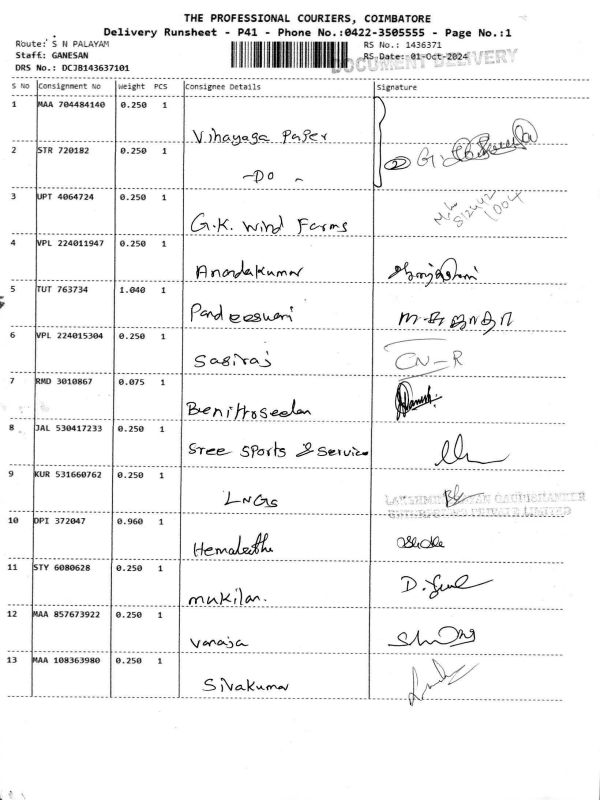 THE PROFESSIONAL COURIERS, COIMBATORE
Delivery Runsheet - P41 - Phone No.:0422-3505555 - Page No.:1
Route: S N PALAYAM RS No.: 1436371
Staff: GANESAN RS Date: 01-Oct-2024
DOCUMENT DELIVERY
DRS No.: DCJB143637101
S No Consignment No Weight PCS Consignee Details Signature
1 MAA 704484140 0.250 1
Vihayaga Paper
2 STR 720182 0.250 1
-DO-
3 UPT 4064724 0.250 1
G.K. Wind Farms
4 VPL 224011947 0.250 1
Anandakumar
5 TUT 763734 1.040 1
Pandeeswari
6 VPL 224015304 0.250 1
Sasiraj
CN-R
7 RMD 3010867 0.075 1
Benittoseelan
8 JAL 530417233 0.250 1
Sree Sports & Service
9 KUR 531660762 0.250 1
LNGS
10 DPI 372047 0.960 1
Hemalatha
11 STY 6080628 0.250 1
mukilan.
12 MAA 857673922 0.250 1
Vanaja
13 MAA 108363980 0.250 1
Sivakumar